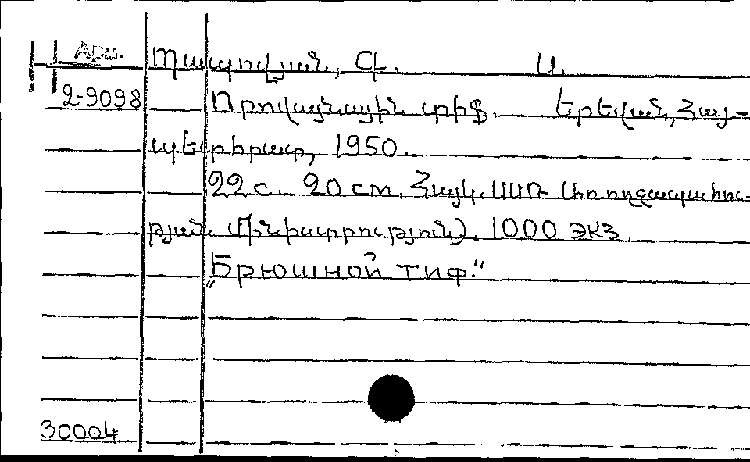 Арм. Պապովյան, Գ. Ս.
2-9098 Որովայնային տիֆ. Երևան, Հայ-
պետհրատ, 1950.
22 с. 20 cm. Հայկ. ՍՍՌ (Առողջապահու-
թյան Մինիստրություն). 1000 экз
„Брюшной тиф."
30004